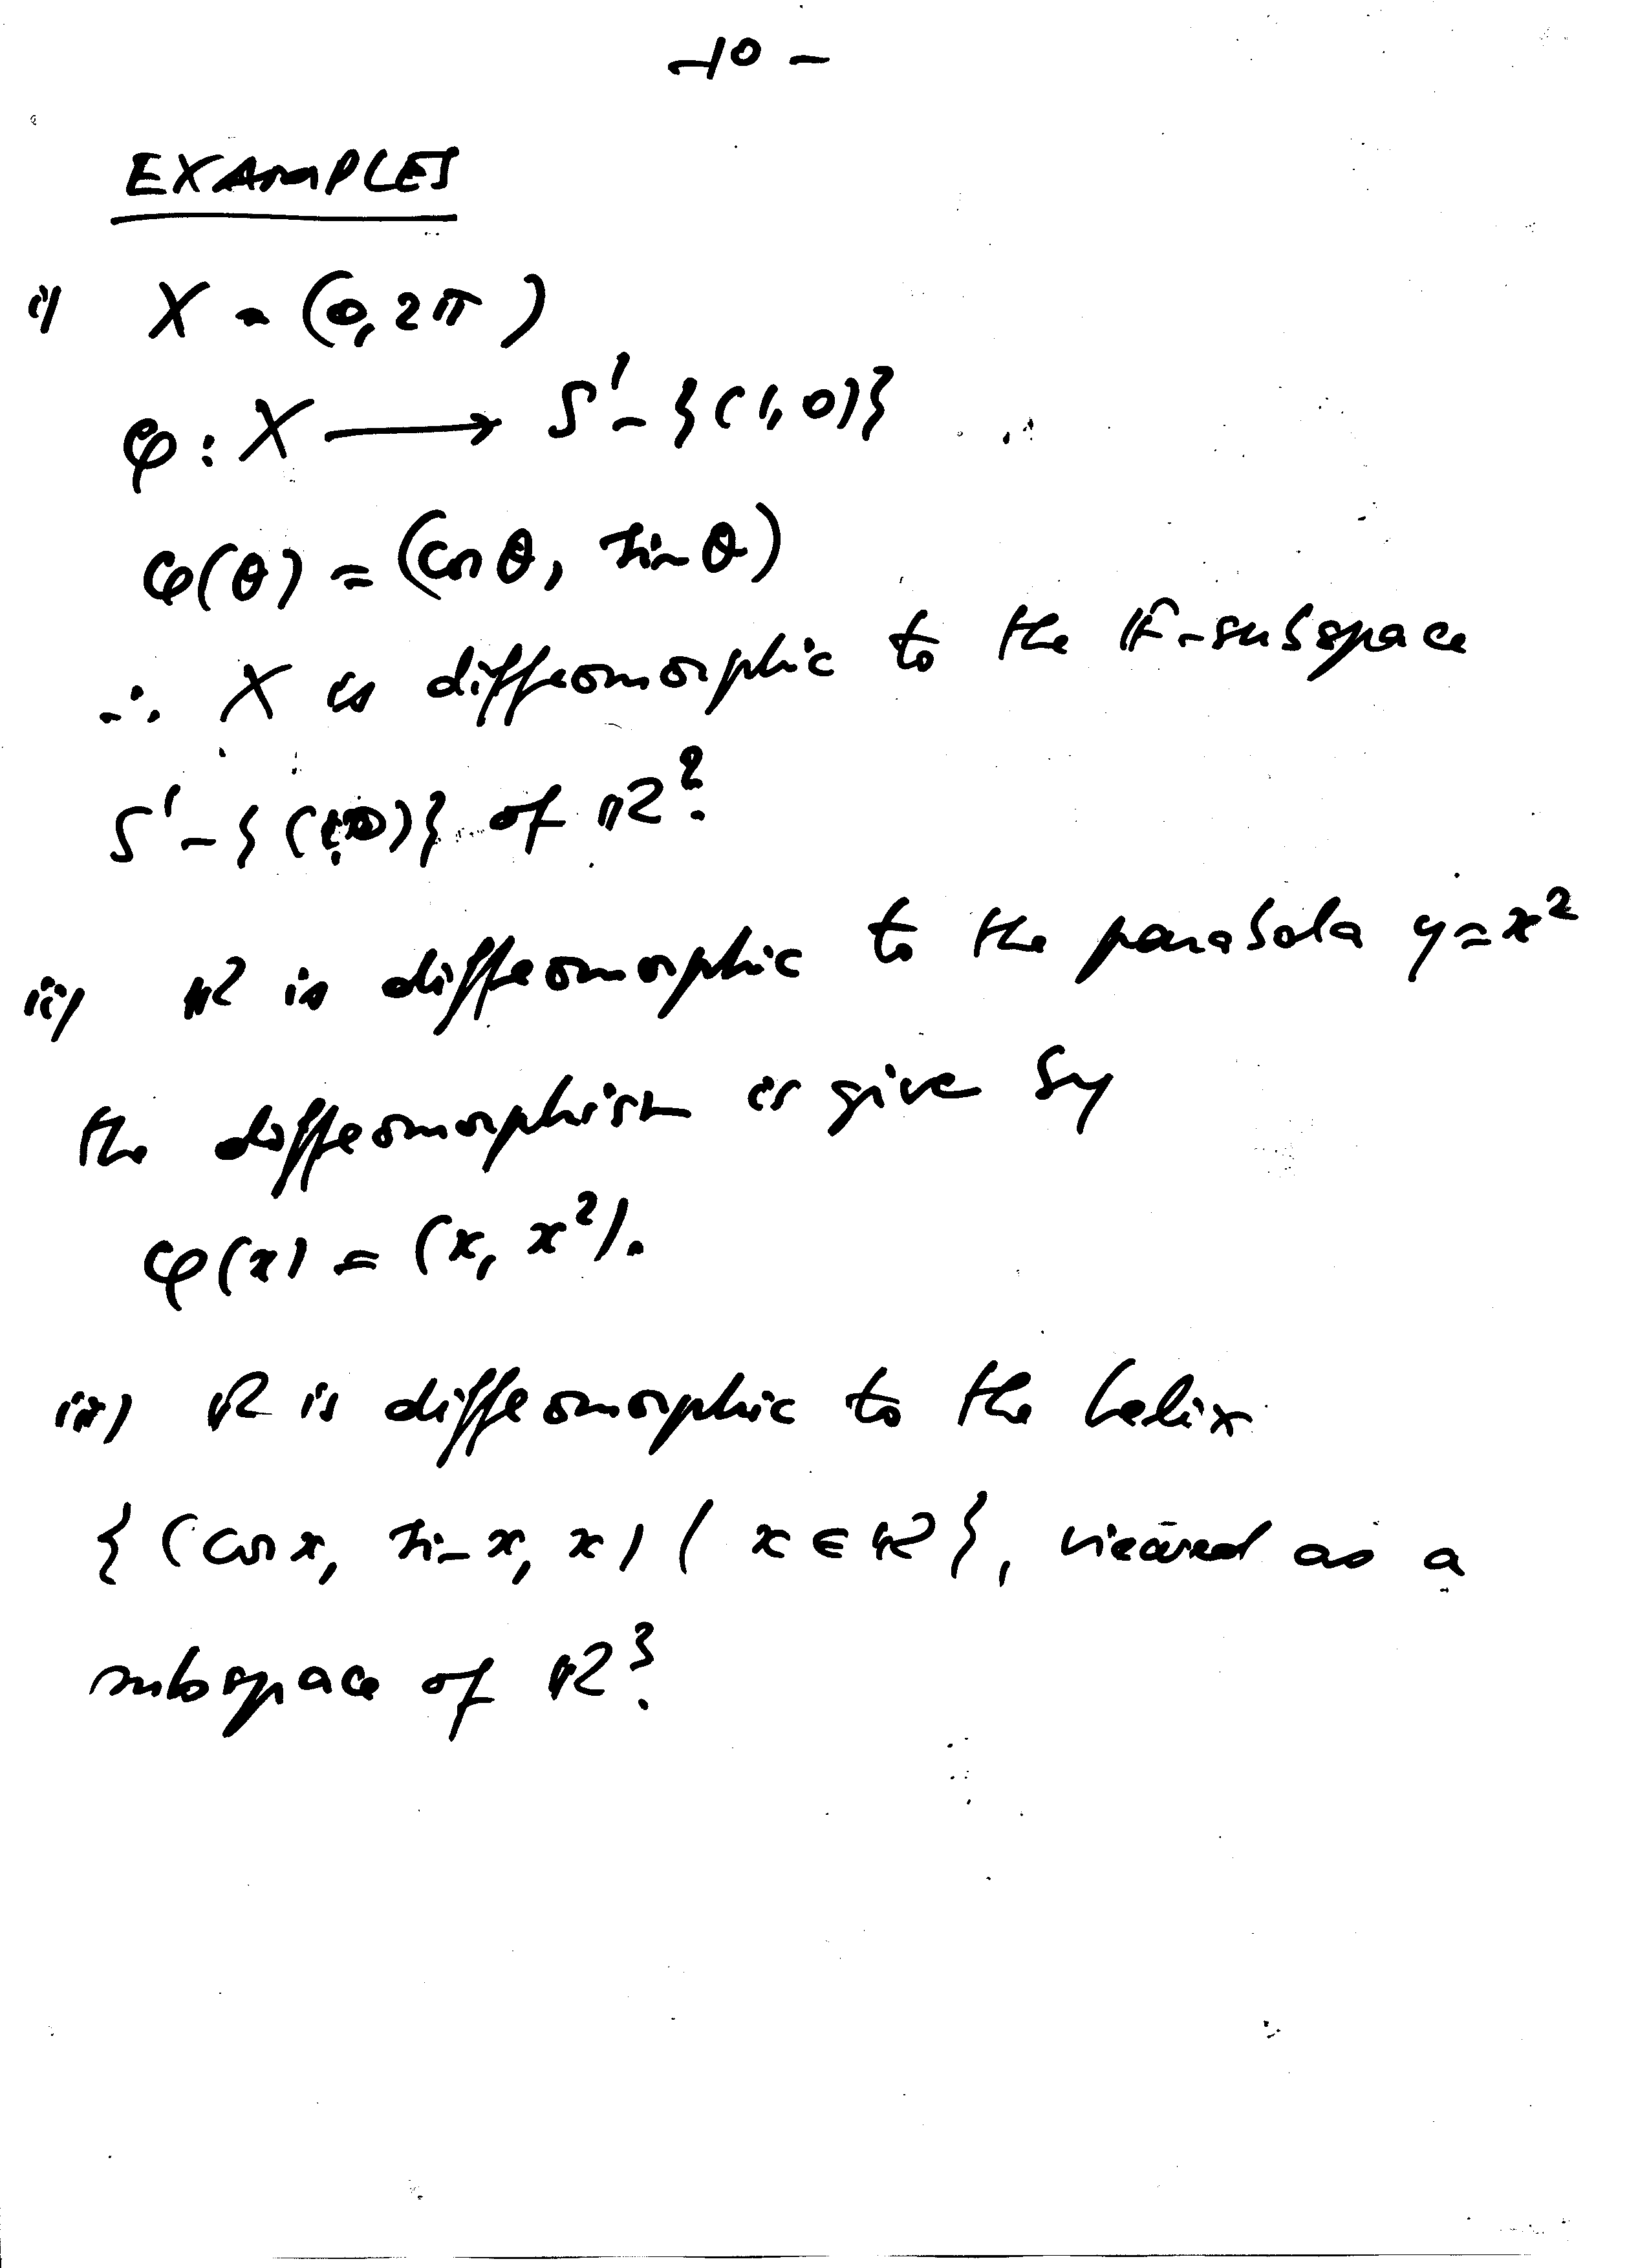 -10-
EXAMPLES
i) X = (0, 2π)
φ : X ⟶ S¹ - {(1,0)}
φ(θ) = (cos θ, sin θ)
∴ X is diffeomorphic to the F-subspace
S¹ - {(1,0)} of ℝ².
ii) ℝ is diffeomorphic to the parabola y = x²
the diffeomorphism is give by
φ(x) = (x, x²).
iii) ℝ is diffeomorphic to the helix
{(cos x, sin x, x) | x ∈ ℝ}, viewed as a
subspace of ℝ³.